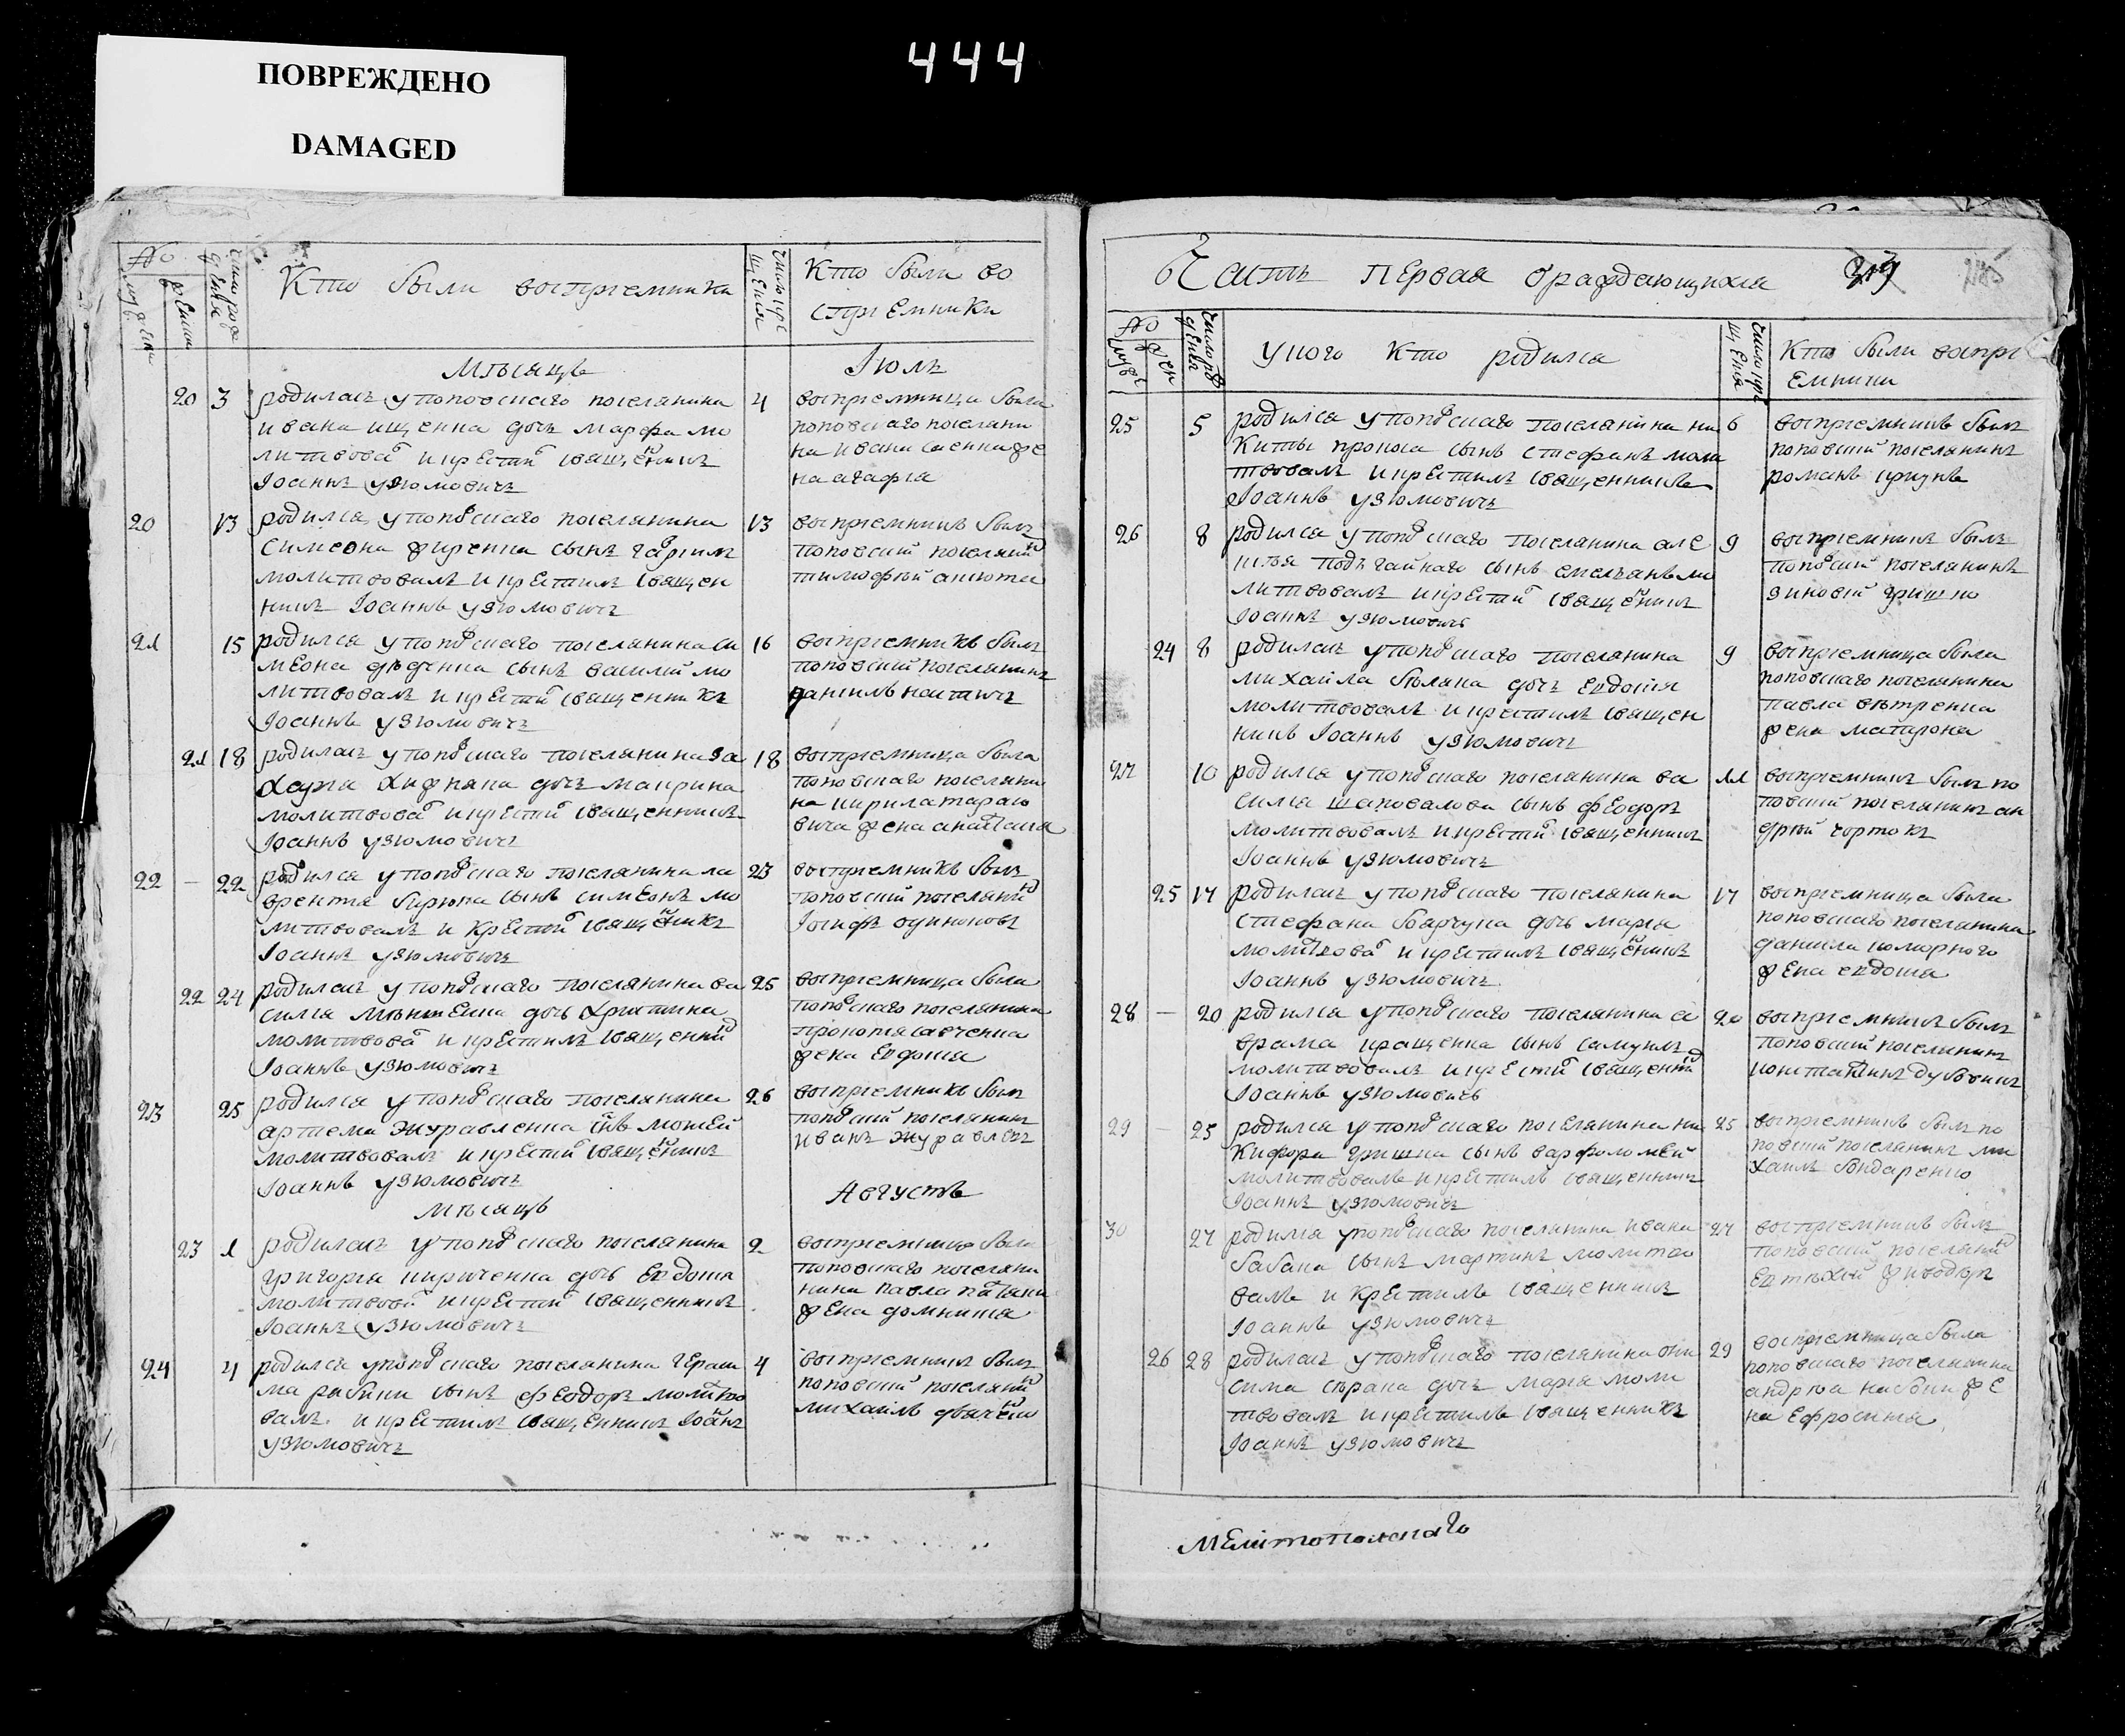 ПОВРЕЖДЕНО
DAMAGED
444
№
Кто были восприемники
Кто были во
сприемники
Мѣсяцъ
Іюль
20 3 родилась у поповскаго поселянина 4
ивана ищенка дочь марфа мо
литвовал и крестил священникъ
Іоаннъ узюмовичъ
восприемница была
поповскаго поселяни
на ивана саенка же
на агафiя
20 13 родился у поповскаго поселянина 13
симеона фиренка сынъ
молитвовалъ и крестилъ священ
никъ Іоаннъ узюмовичъ
восприемникъ былъ
поповский поселянин
тимофѣй
21 15 родился у поповскаго поселянина си 16
меона дядченка сынъ василий мо
литвовалъ и крестил священникъ
Іоаннъ узюмовичъ
восприемникъ былъ
поповский поселянинъ
даниилъ
21 18 родилась у поповскаго поселянина за 18
харiя дочь
молитвовал и крестил священникъ
Іоаннъ узюмовичъ
восприемница была
поповскаго поселяни
на кирила тарасо
вича жена анастасiя
22 – 22 родился у поповскаго поселянина ла 23
врентiя бирюка сынъ симеонъ мо
литвовалъ и крестил священикъ
Іоаннъ узюмовичъ
восприемникъ былъ
поповский поселянин
Іосифъ одиноковъ
22 24 родилась у поповскаго поселянина ва 25
силiя дочь христина
молитвовал и крестилъ священник
Іоаннъ узюмовичъ
восприемница была
поповскаго поселянина
прокопiя савченка
жена Евдокiя
23 25 родился у поповскаго поселянина 26
артема журавленка снъ моисей
молитвовалъ и крестил священикъ
Іоаннъ узюмовичъ
восприемникъ былъ
поповский поселянинъ
иванъ журавлевъ
Мѣсяцъ
Августъ
23 1 родилась у поповскаго поселянина 2
григорiя кириченка дочь Евдокiя
молитвовал и крестил священникъ
Іоаннъ узюмовичъ
восприемница была
поповскаго поселяни
нина павла
жена домникiя
24 4 родился у поповскаго поселянина гераси 4
ма рябики сынъ феодоръ молитво
валъ и крестилъ священникъ Іоанъ
узюмовичъ
восприемникъ былъ
поповский поселянин
михаилъ
Часть первая о раждающихся 245
№
У кого кто родился
Кто были воспрi
емники
25 5 родился у поповскаго поселянина ни 6
киты прокопа сынъ стефанъ моли
твовалъ и крестилъ священникъ
Іоаннъ узюмовичъ
восприемникъ былъ
поповский поселянинъ
романъ
26 8 родился у поповскаго поселянина але 9
ксѣя подъгайнаго сынъ емелiанъ мо
литвовалъ и крестил священикъ
Іоаннъ узюмовичъ
восприемникъ былъ
поповский поселянинъ
зиновiй гришко
24 8 родилась у поповскаго поселянина 9
михаила бѣляка дочь Евдокiя
молитвовалъ и крестилъ священ
никъ Іоаннъ узюмовичъ
восприемница была
поповскаго поселянина
павла вѣтренка
жена матрона
27 10 родился у поповскаго поселянина ва 11
силiя шаповалова сынъ феодоръ
молитвовалъ и крестил священникъ
Іоаннъ узюмовичъ
восприемникъ былъ по
повский поселянинъ ан
дрѣй чортокъ
25 17 родилась у поповскаго поселянина 17
стефана дочь марiя
молитвовал и крестилъ священикъ
Іоаннъ узюмовичъ
восприемница была
поповскаго поселянина
данiила коморного
жена евдокiя
28 – 20 родился у поповскаго поселянина а 20
врама кращенка сынъ самуилъ
молитвовалъ и крестил священик
Іоаннъ узюмовичъ
восприемникъ былъ
поповский поселянинъ
константинъ дубовикъ
29 – 25 родился у поповскаго поселянина ни 25
кифора гришка сынъ варфоломей
молитвовалъ и крестилъ священникъ
Іоаннъ узюмовичъ
восприемникъ былъ по
повский поселянинъ ми
хаилъ бондаренко
30 27 родился у поповскаго поселянина ивана 27
бабака сынъ мартинъ молитво
валъ и крестилъ священникъ
Іоаннъ узюмовичъ
восприемникъ былъ
поповский поселянин
26 28 родилась у поповскаго поселянина они 29
сима сѣрака дочь марiя моли
твовалъ и крестилъ священникъ
Іоаннъ узюмовичъ
восприемница была
поповскаго поселянина
андрѣя же
на Ефросинiя
мелитопольскаго